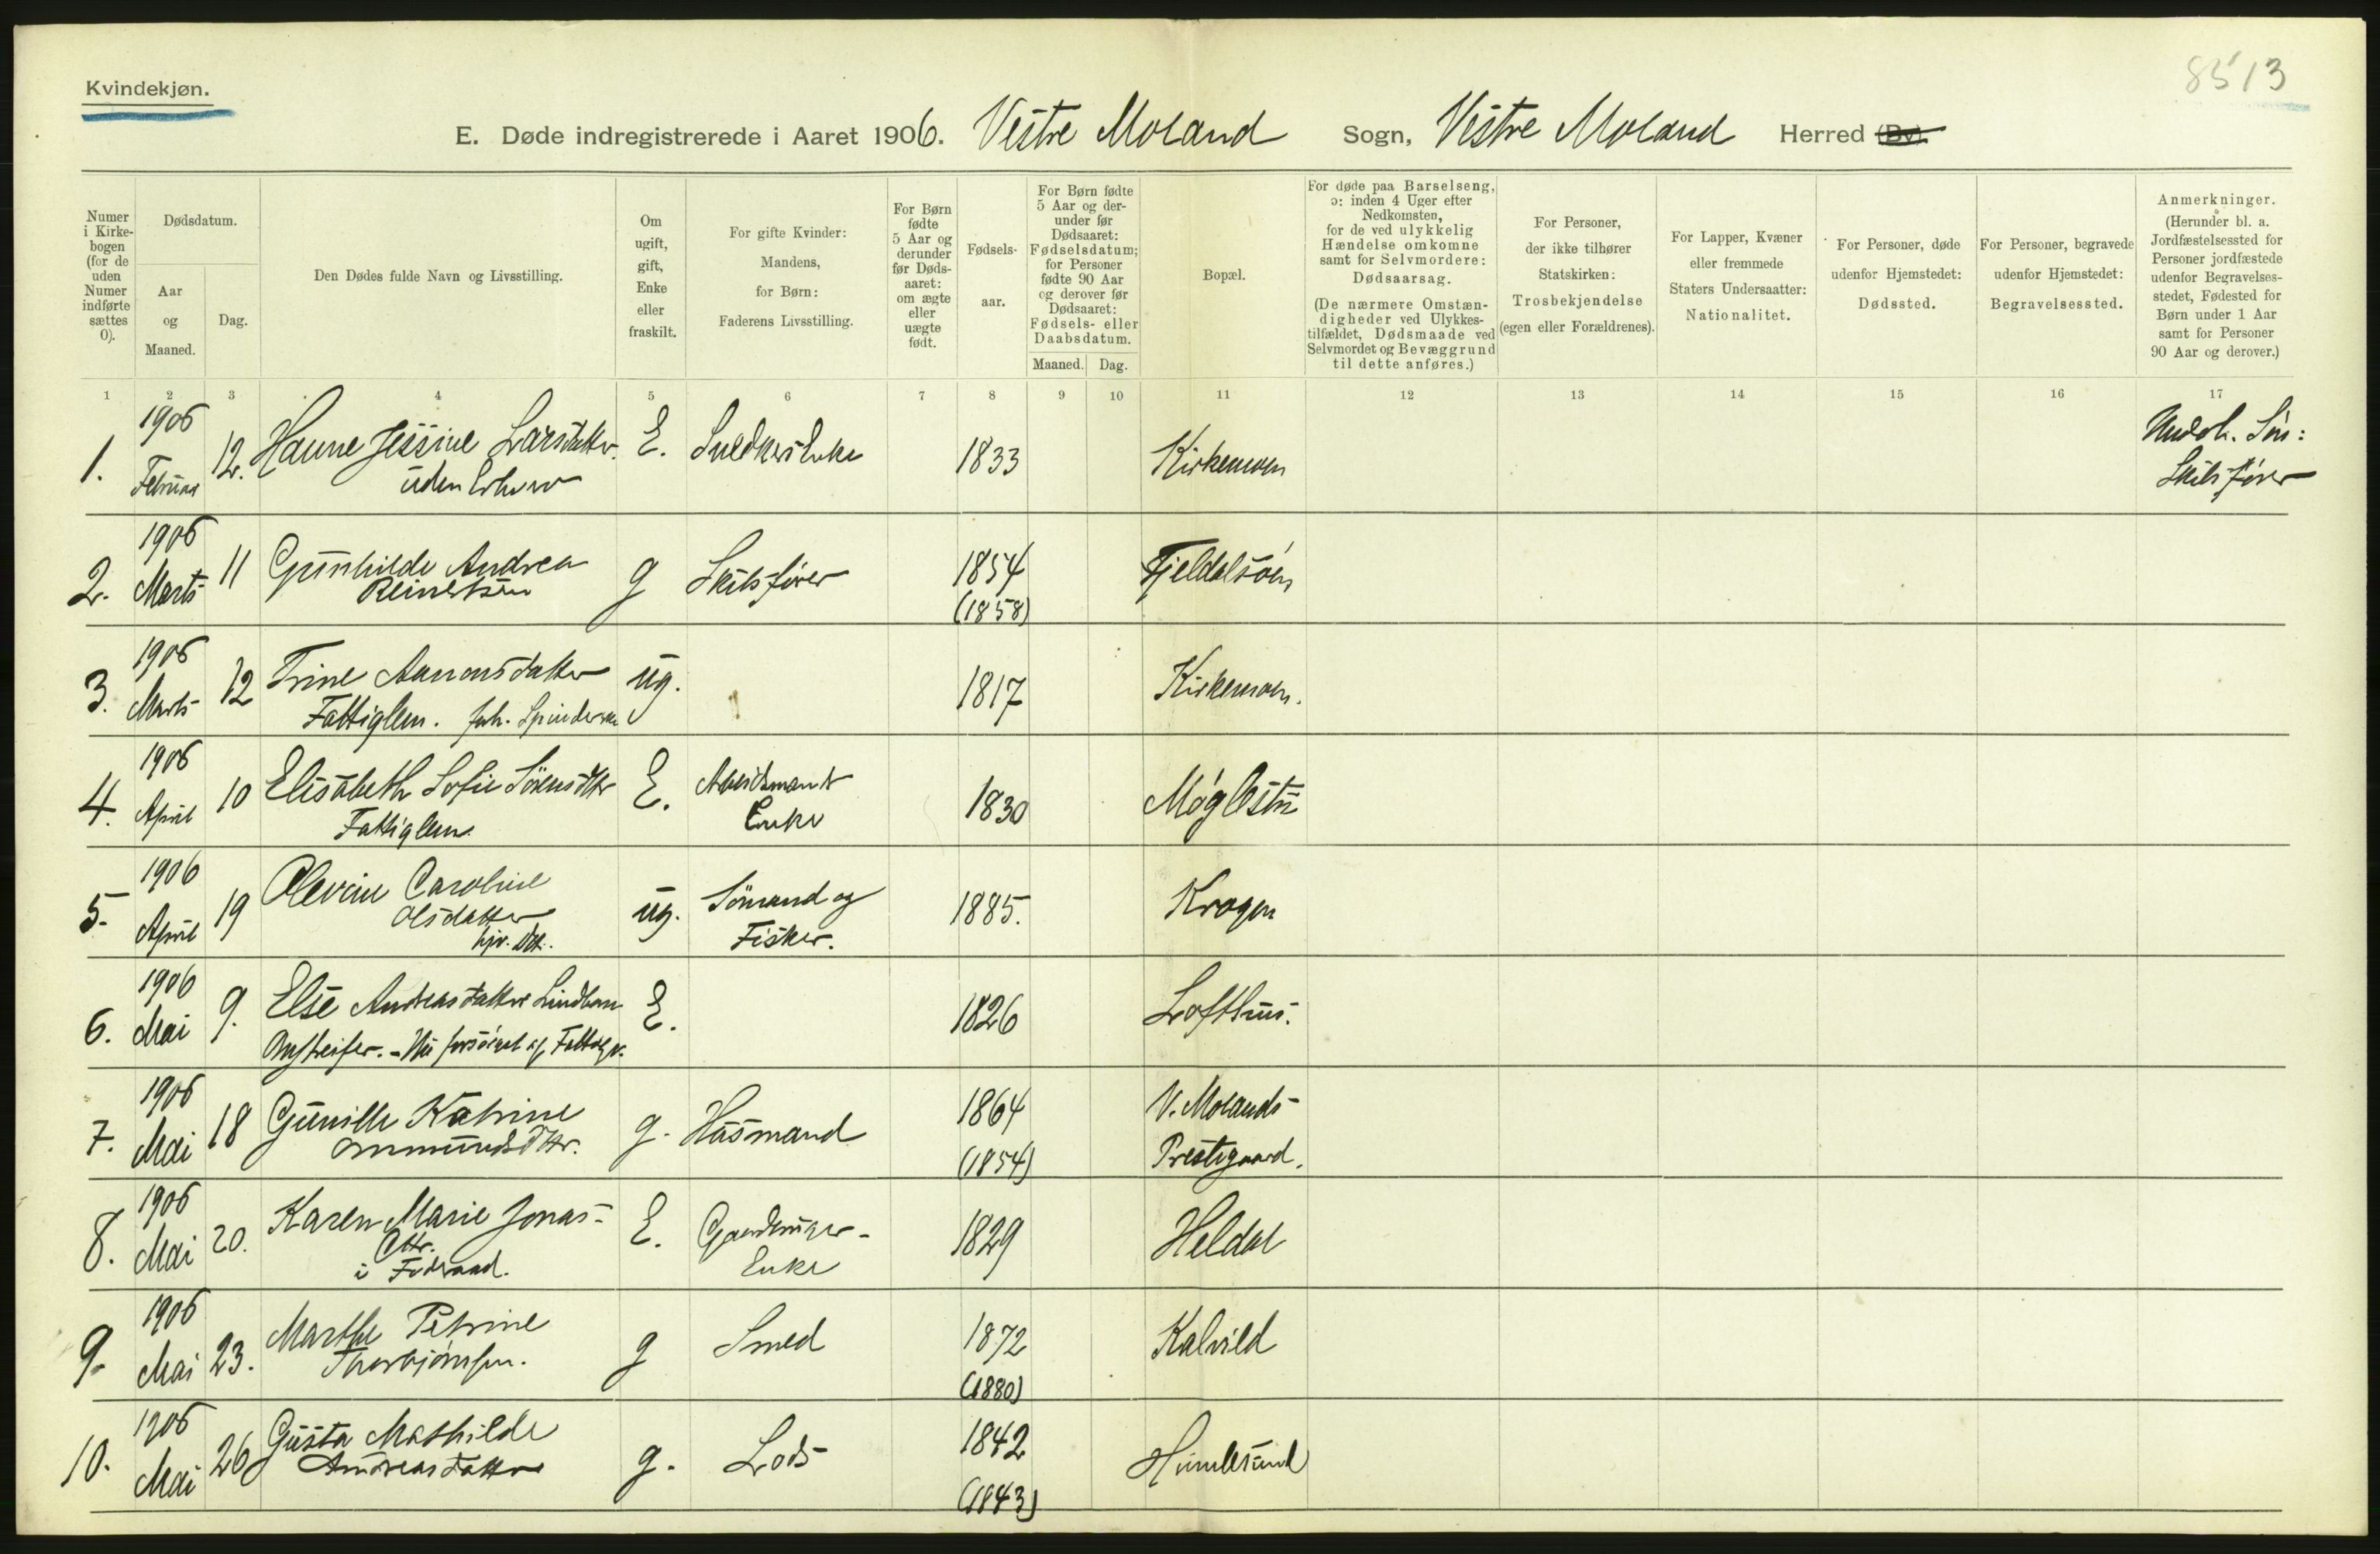 8513
Kvindekjøn.
E. Døde indregistrerede i Aaret 1906. Vestre Moland Sogn, Vestre Moland Herred (By).
Numer i Kirke-bogen (for de uden Numer indførte sættes 0).
Dødsdatum.
Aar og Maaned.
Dag.
Den Dødes fulde Navn og Livsstilling.
Om ugift, gift, Enke eller fraskilt.
For gifte Kvinder: Mandens, for Børn: Faderens Livsstilling.
For Børn fødte 5 Aar og derunder før Døds-aaret: om ægte eller uægte født.
Fødsels-aar.
For Børn fødte 5 Aar og der-under før Dødsaaret: Fødselsdatum; for Personer fødte 90 Aar og derover før Dødsaaret: Fødsels- eller Daabsdatum.
Maaned. Dag.
Bopæl.
For døde paa Barselseng, ɔ: inden 4 Uger efter Nedkomsten, for de ved ulykkelig Hændelse omkomne samt for Selvmordere: Dødsaarsag.
(De nærmere Omstæn-digheder ved Ulykkes-tilfældet, Dødsmaade ved Selvmordet og Bevæggrund til dette anføres.)
For Personer, der ikke tilhører Statskirken: Trosbekjendelse (egen eller Forældrenes).
For Lapper, Kvæner eller fremmede Staters Undersaatter: Nationalitet.
For Personer, døde udenfor Hjemstedet: Dødssted.
For Personer, begravede udenfor Hjemstedet: Begravelsessted.
Anmerkninger. (Herunder bl. a. Jordfæstelsessted for Personer jordfæstede udenfor Begravelses-stedet, Fødested for Børn under 1 Aar samt for Personer 90 Aar og derover.)
1 2 3 4 5 6 7 8 9 10 11 12 13 14 15 16 17
1. 1906 Februar 12. Hanne Jessine Larsdatter E. 1833 Kirkemoen
uden Erhverv
Skibsfører
2. 1906 Marts 11 Gunhilde Andrea g Skibsfører 1854 Fjeldalsøen
Reinertsen (1858)
3. 1906 Marts 12 Trine Aanonsdatter ug. 1817 Kirkemoen.
Fattiglem. forh. Spinderske
4. 1906 April 10 Elisabeth Sofie Sörensdtr E. Arbeidsmands 1830
Fattiglem. Enke
5. 1906 April 19 Olevine Caroline ug. Sömand og 1885. Krogen
Olsdatter Fisker.
hjv. Dtr.
6. 1906 Mai 9. Else Andreasdatter E. 1826 Lofthus.
Nu forsörget af
7. 1906 Mai 18 Gunille Katrine g. Husmand 1864 V. Molands
Ommundsdtr. (1854) Prestegaard.
8. 1906 Mai 20. Karen Marie Jonas- E. Gaardbruger- 1829 Heldal
dtr. Enke
i Föderaad.
9. 1906 Mai 23. Marthe Petrine g Smed 1872 Kalvild
Thorbjörnsen. (1880)
10. 1906 Mai 26 Gusta Mathilde g. Lods 1842 Humlesund
Andreasdatter (1843)